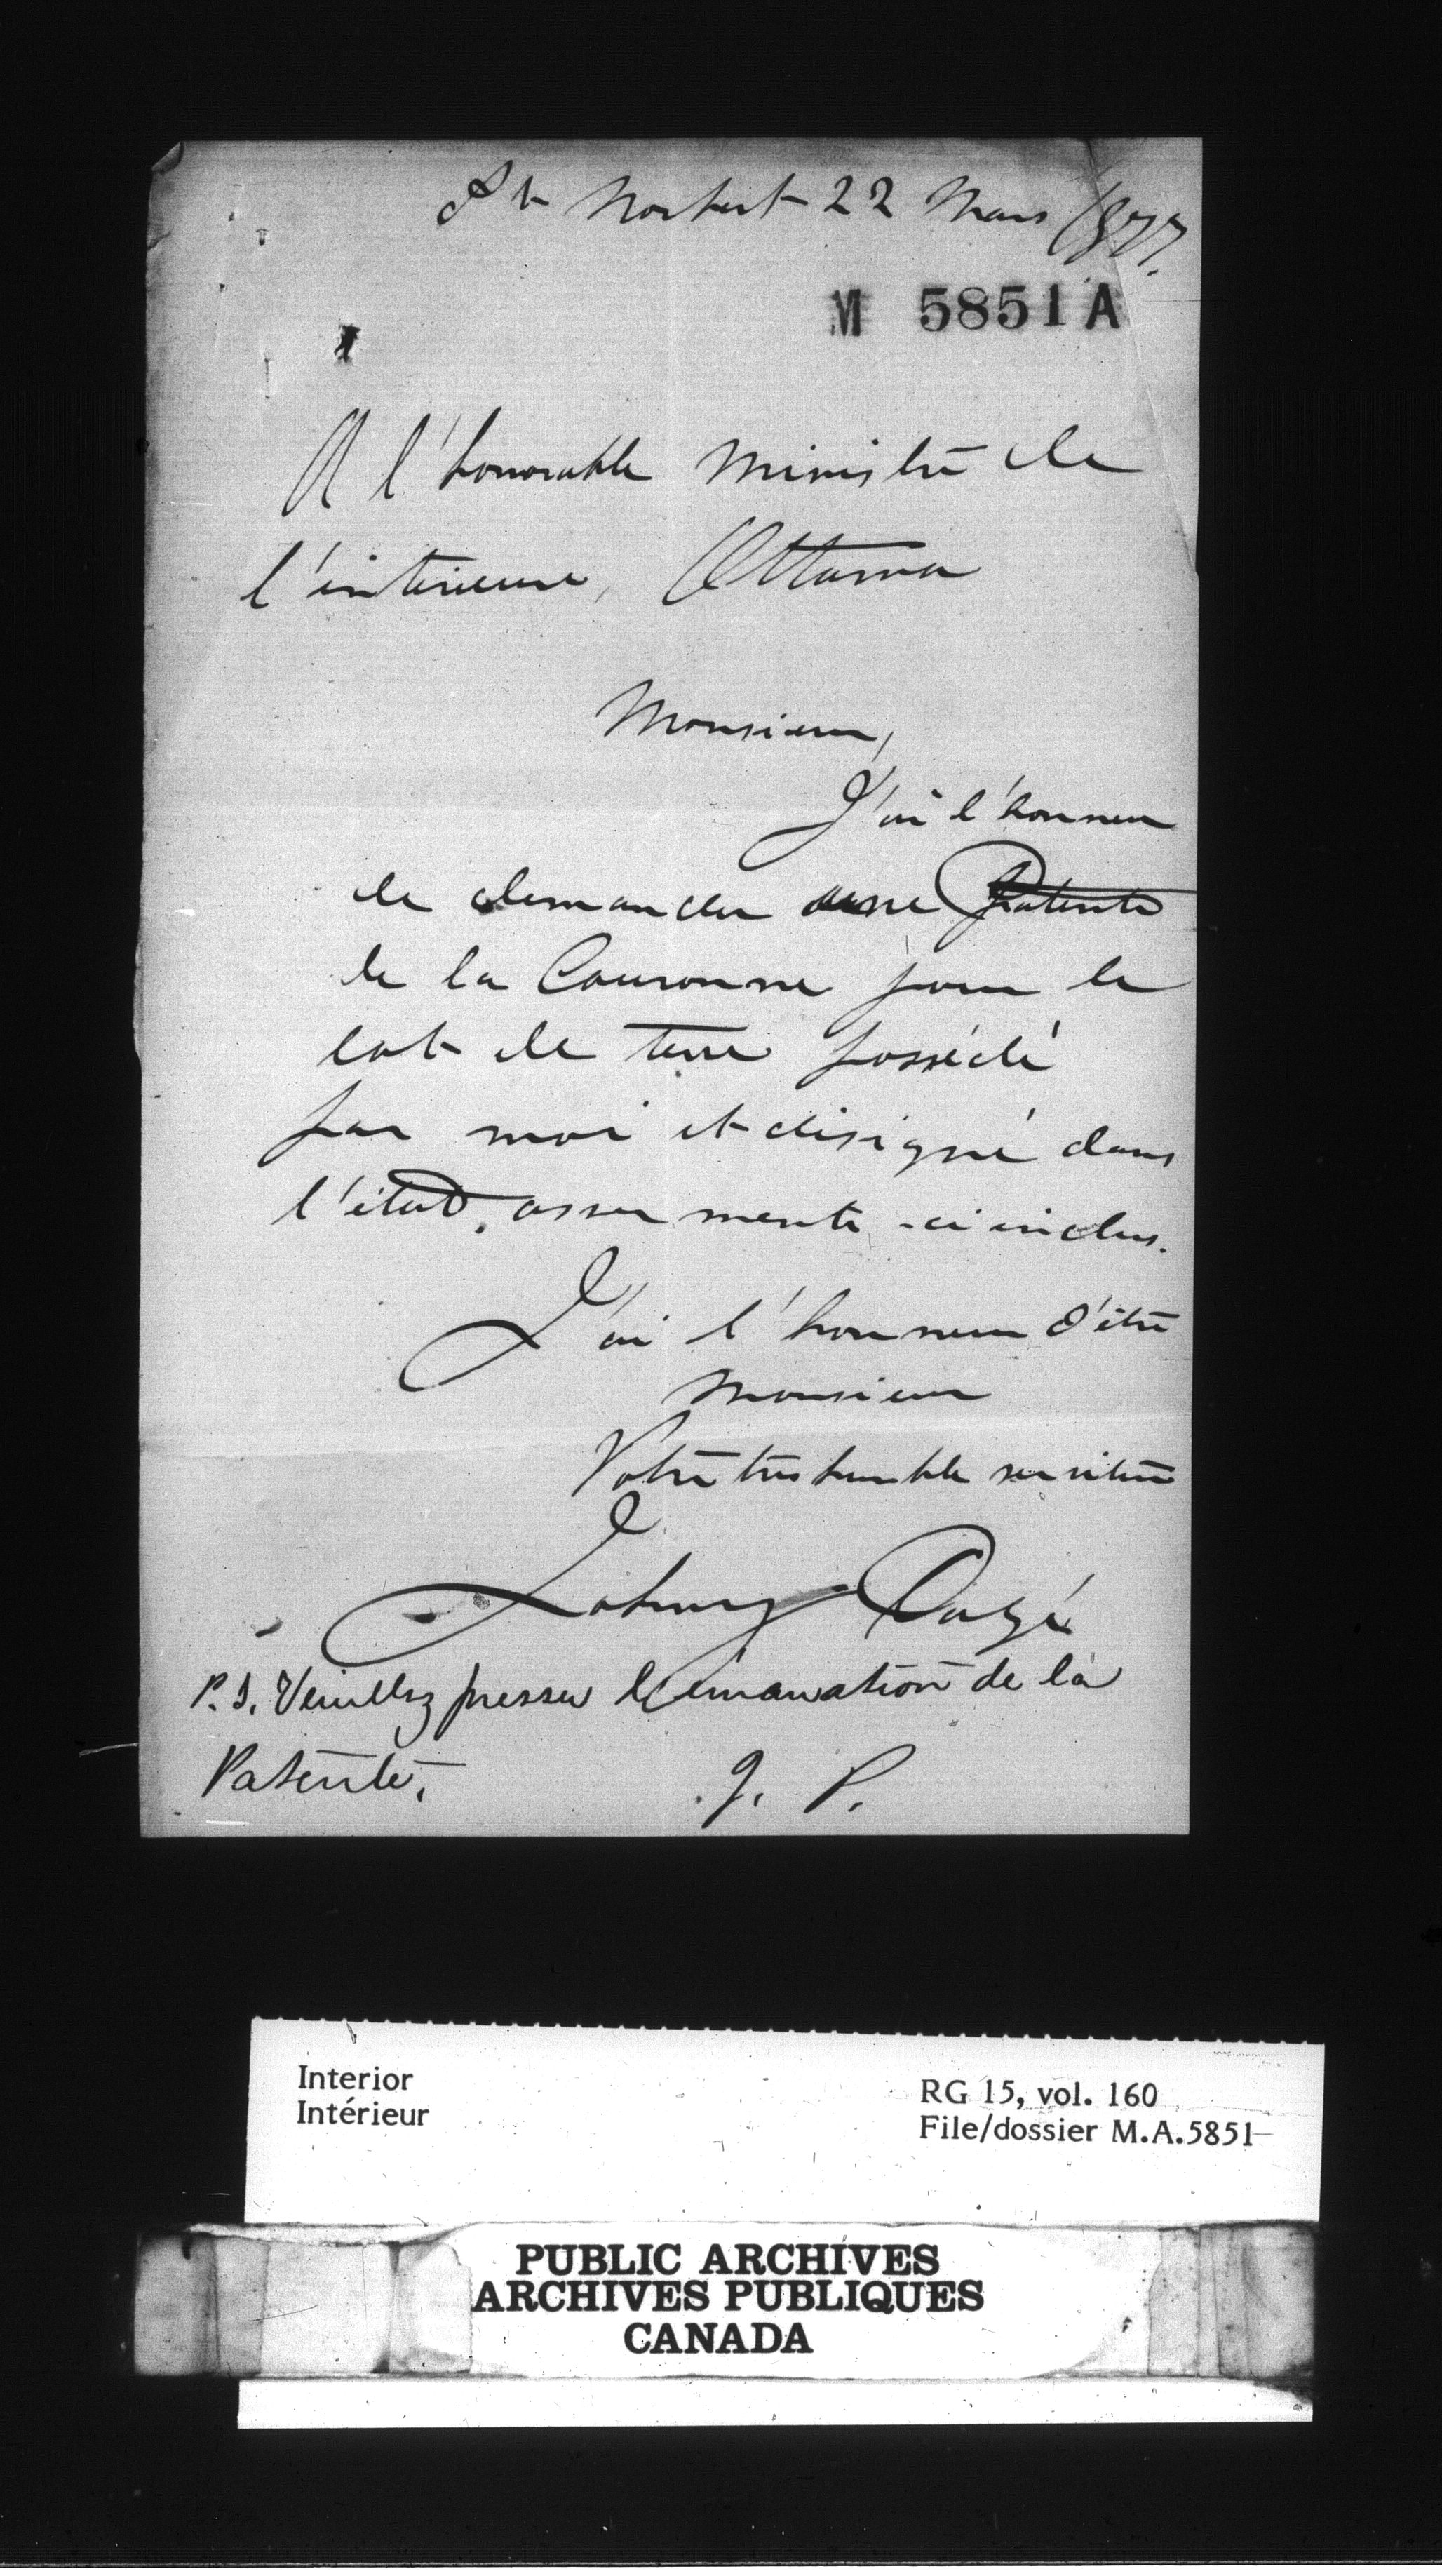 St Norbert 22 Mars 1877.
M 5851 A
A l'honorable Ministre de
l'interieure, Ottawa
Monsieur,
J'ai l'honneur
de demander une Patente
de la Couronne pour le
lot de terre possédé
par moi et designé dans
l'état assermenté ci-inclus.
J'ai l'honneur d'être
Monsieur
Votre très humble serviteur
Johnny
P.S. Veuillez presser l'émanation de la
Patente.
J. P.
Interior
Intérieur
RG 15, vol. 160
File/dossier M.A.5851
PUBLIC ARCHIVES
ARCHIVES PUBLIQUES
CANADA